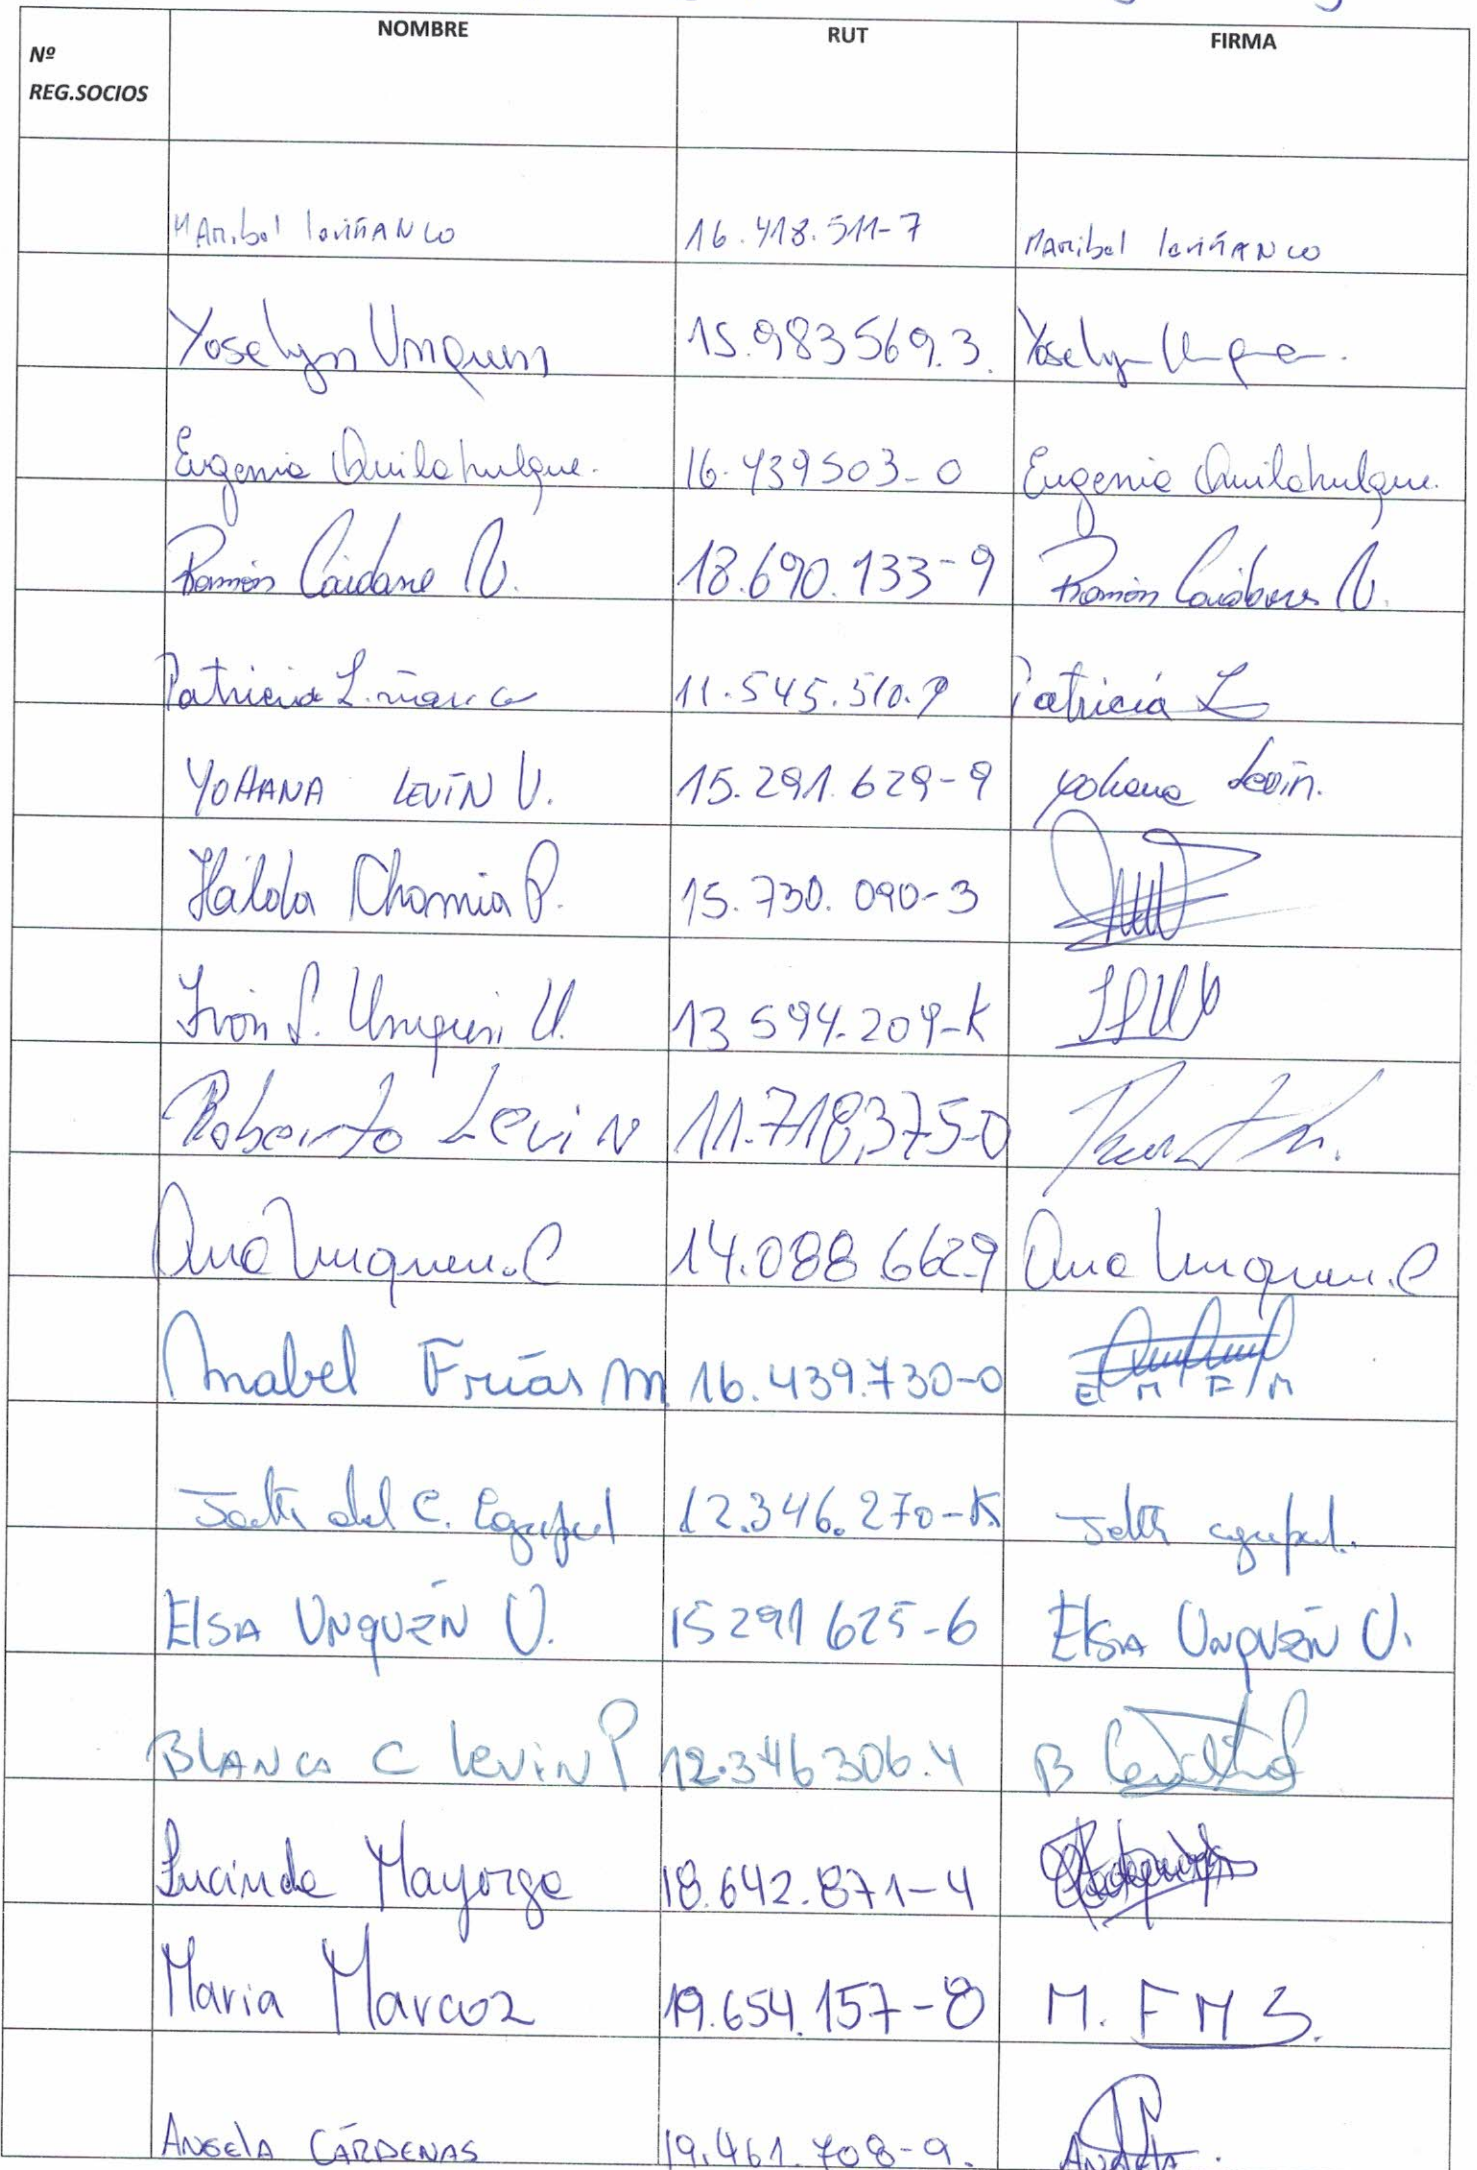 Nº
REG.SOCIOS
NOMBRE RUT FIRMA
Maribel leviñanco 16.418.511-7 Maribel leviñanco
Yoselyn Unquen 15.983569.3. Yoselyn
Eugenia Quilahulque. 16.439503-0 Eugenia Quilahulque.
Ramón 18.690.133-9 Ramón
Patricia L. 11.545.510.9 Patricia L
YOHANA LEVÍN V. 15.291.629-9 yohana Levín.
Hilda Chamia P. 15.730.090-3
Ivon S. Unquen U. 13594.209-K
Roberto LeviN 11.718,375-0
Ana Unquen.C 14.088.662.9 Ana Unquen.C
Mabel Frías M 16.439.730-0 E M F M
del C. 12.346.270-K
Elsa Unquén U. 15291625-6 Elsa Unquén U.
BLANCA C LeviN P 12.346306.4 B
Lucinda Mayorga 18.642.871-4
Maria Marcoz 19.654.157-8 M. F M S.
ANGELA CÁRDENAS 19.461.708-9.